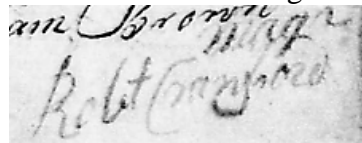 am: Brown
Robt Crawford